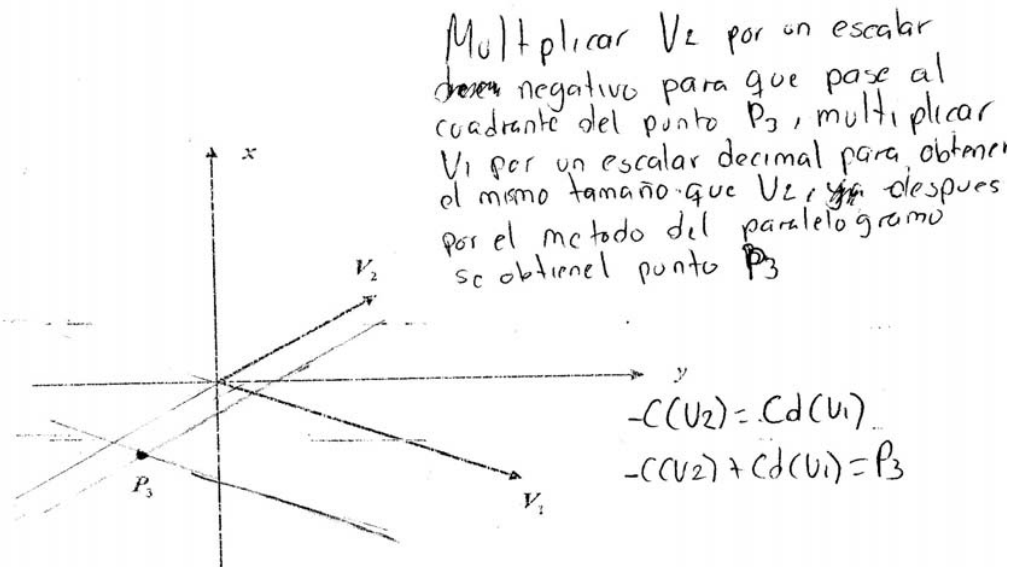 Multplicar V2 por un escalar
negativo para que pase al
cuadrante del punto P3, multiplicar
V1 por un escalar decimal para obtener
el mismo tamaño que V2, despues
por el metodo del paralelogramo
se obtienel punto P3
x
V2
y
-C(V2)=Cd(V1)
-C(V2)+Cd(V1)=P3
P3
V1